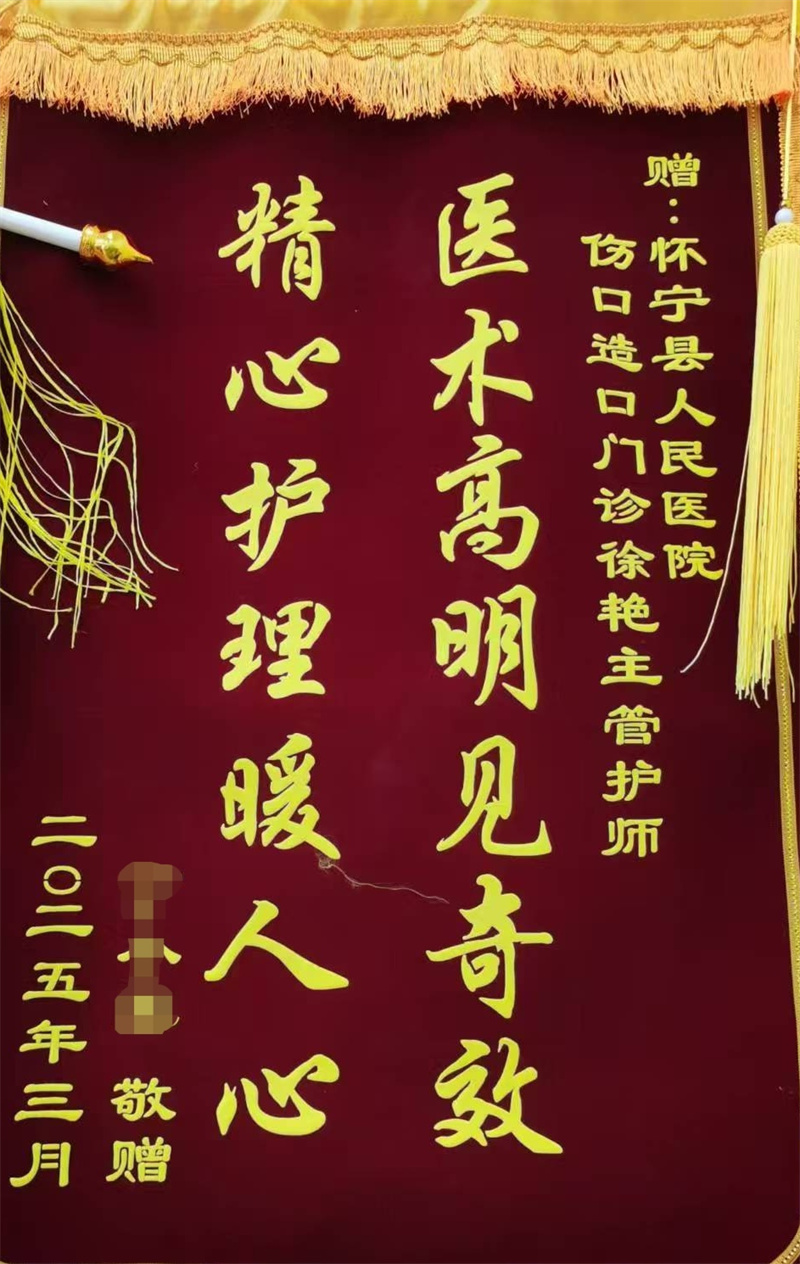 赠：怀宁县人民医院
伤口造口门诊徐艳主管护师
医术高明见奇效
精心护理暖人心
敬赠
二〇二五年三月